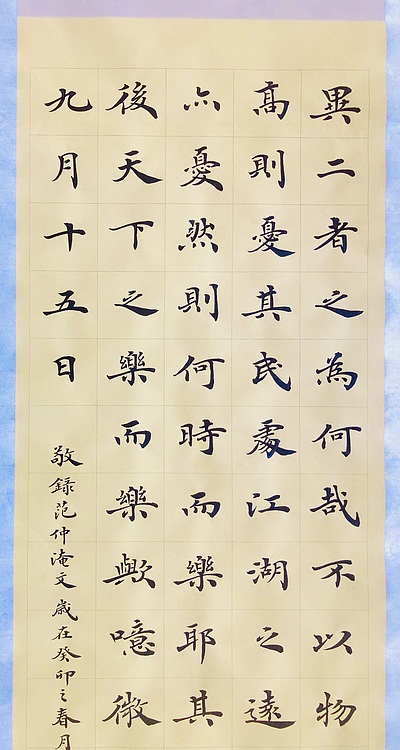 異二者之為何哉不以物
高則憂其民處江湖之遠
亦憂然則何時而樂耶其
後天下之樂而樂歟噫微
九月十五日
敬録范仲淹文歳在癸卯之春月